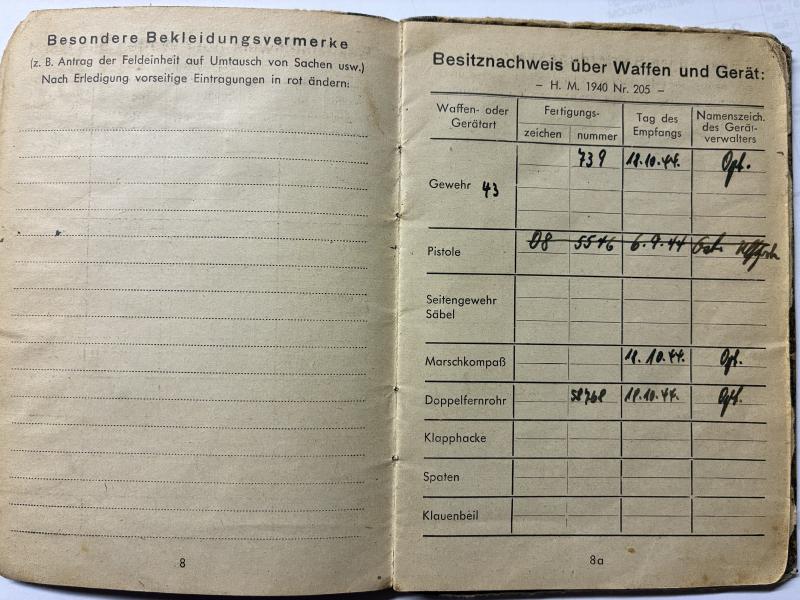 Besondere Bekleidungsvermerke
(z. B. Antrag der Feldeinheit auf Umtausch von Sachen usw.)
Nach Erledigung vorseitige Eintragungen in rot ändern:
8
Besitznachweis über Waffen und Gerät:
– H. M. 1940 Nr. 205 –
Waffen- oder Gerätart
Fertigungs-
zeichen nummer
Tag des Empfangs
Namenszeich. des Gerät-verwalters
739 18.10.44.
Gewehr 43
Pistole 08 5546 6.9.44
Seitengewehr
Säbel
Marschkompaß 18.10.44.
Doppelfernrohr 58768 18.10.44.
Klapphacke
Spaten
Klauenbeil
8a